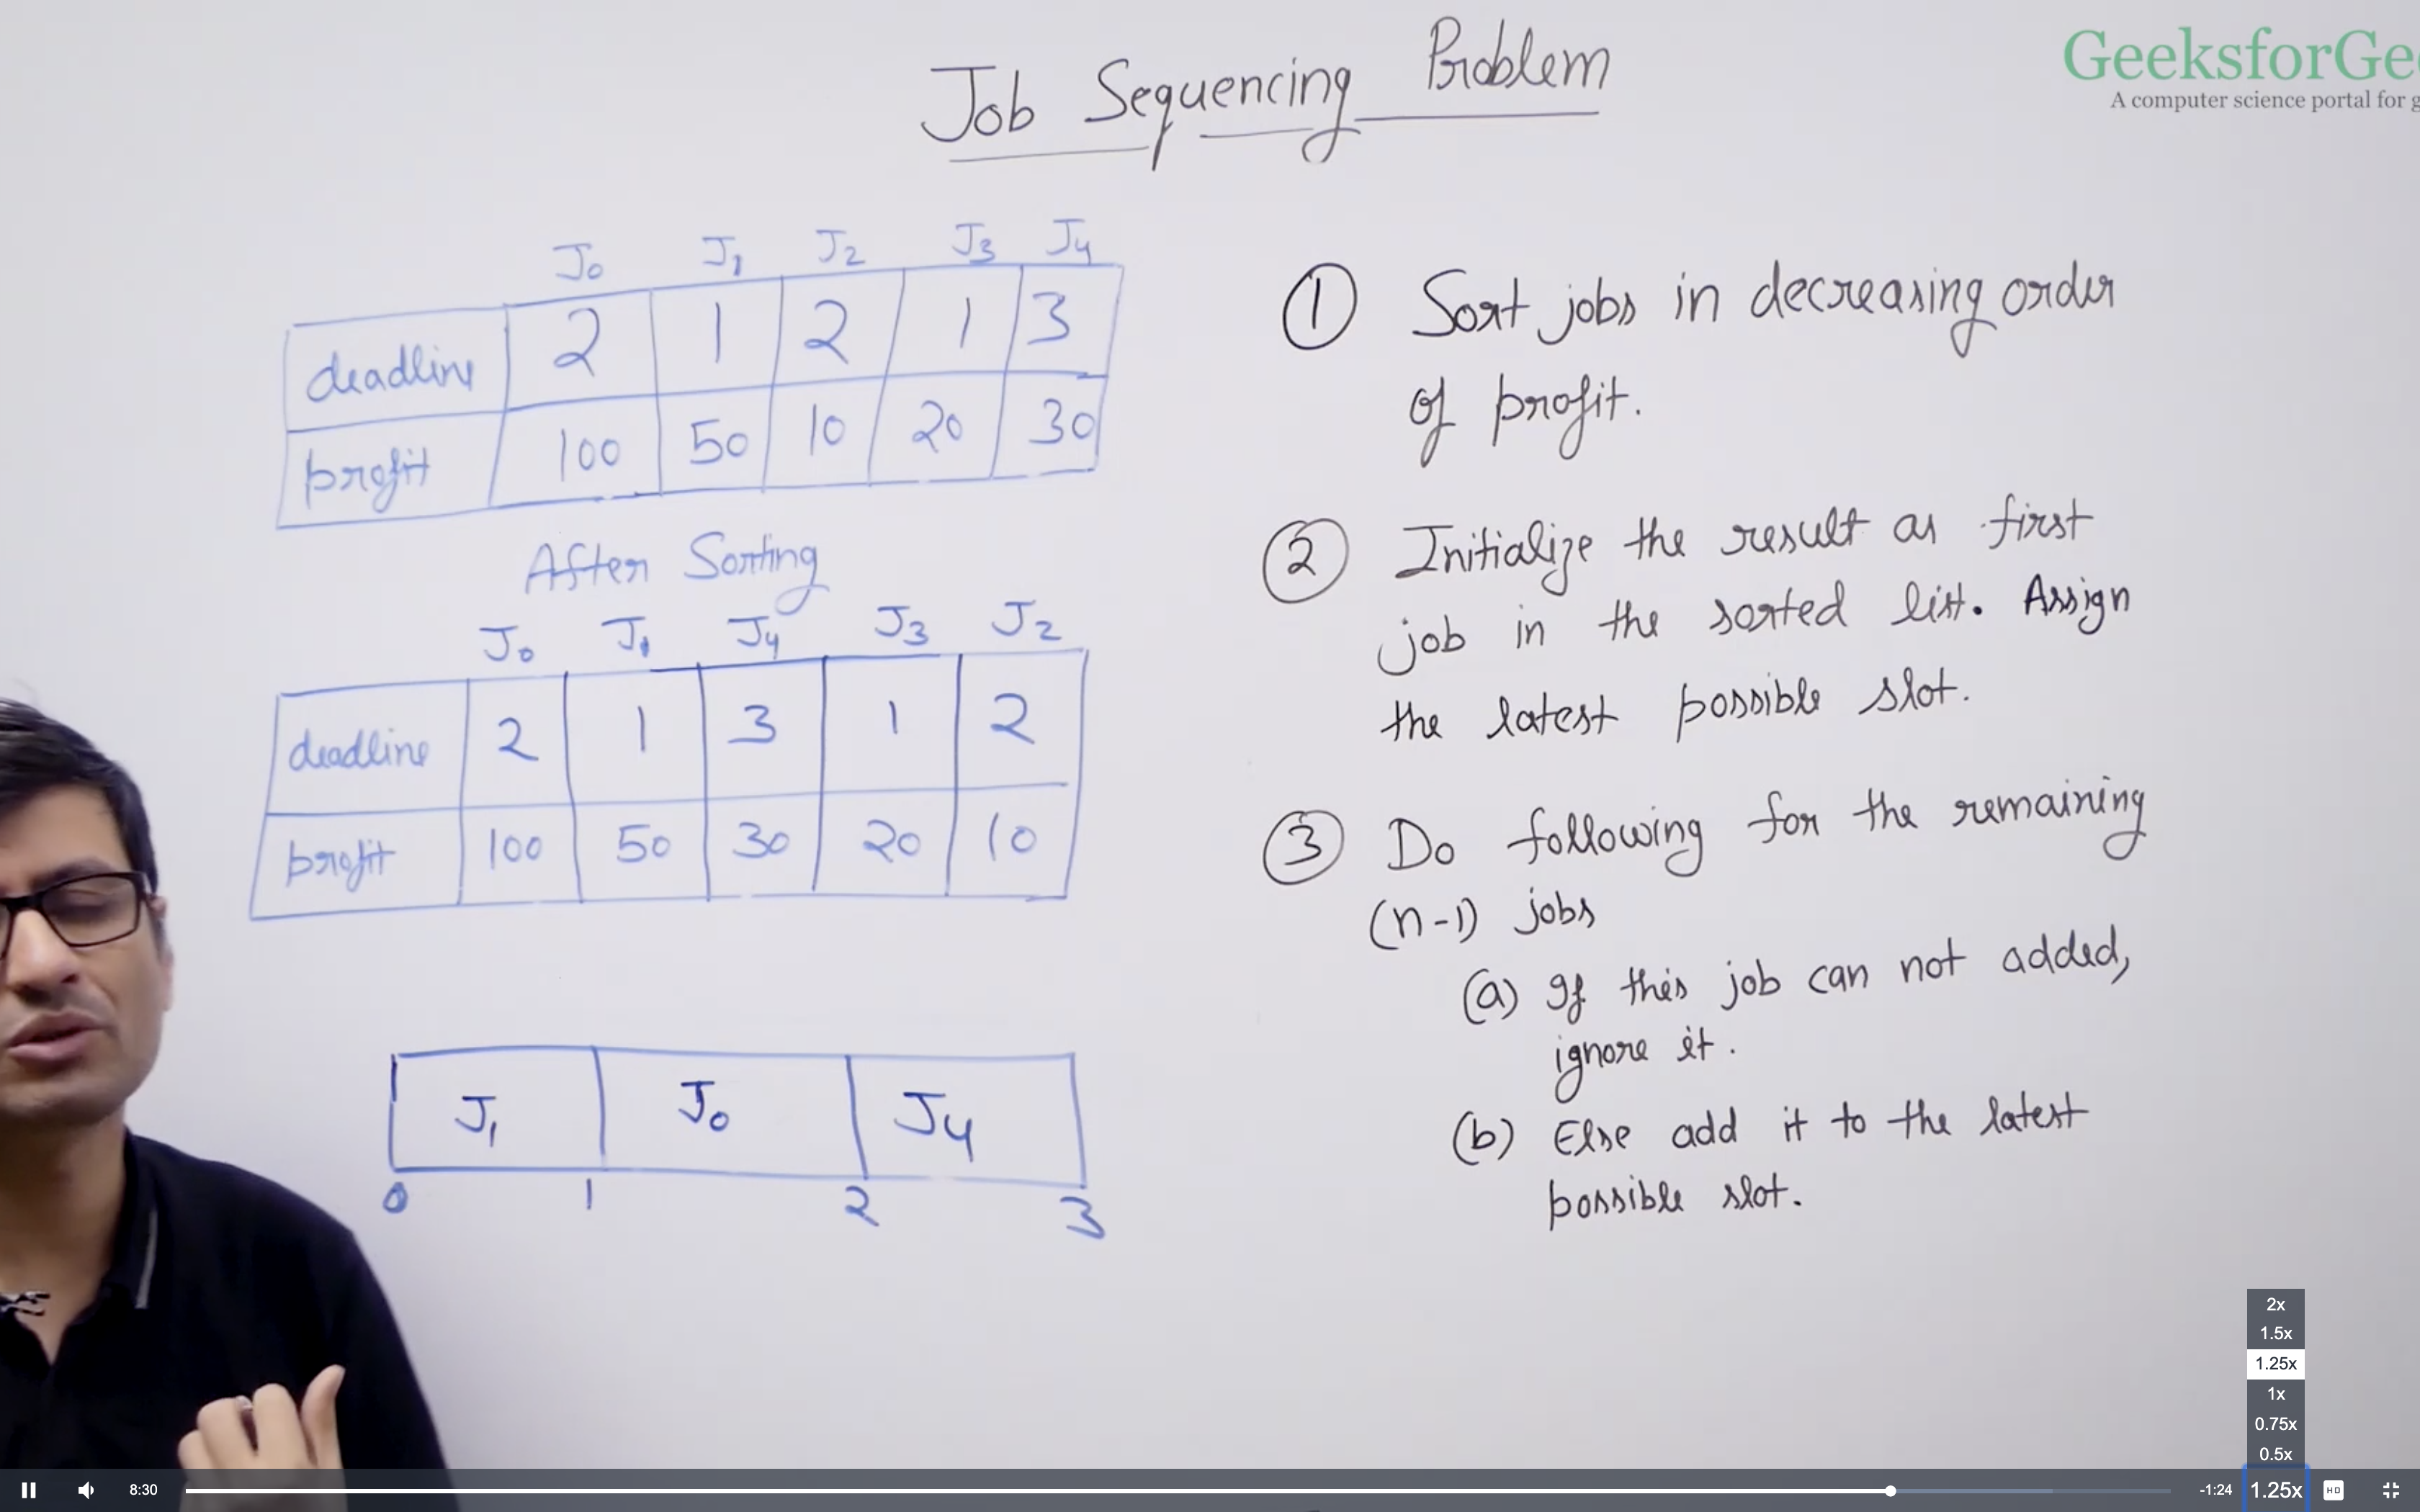 Job Sequencing Problem
GeeksforGe
A computer science portal for g
J0 J1 J2 J3 J4
deadline 2 1 2 1 3
profit 100 50 10 20 30
After Sorting
J0 J1 J4 J3 J2
deadline 2 1 3 1 2
profit 100 50 30 20 10
J1 J0 J4
0 1 2 3
① Sort jobs in decreasing order
of profit.
② Initialize the result as first
job in the sorted list. Assign
the latest possible slot.
③ Do following for the remaining
(n-1) jobs
(a) If this job can not added,
ignore it.
(b) Else add it to the latest
possible slot.
2x
1.5x
1.25x
1x
0.75x
0.5x
8:30 -1:24 1.25x HD